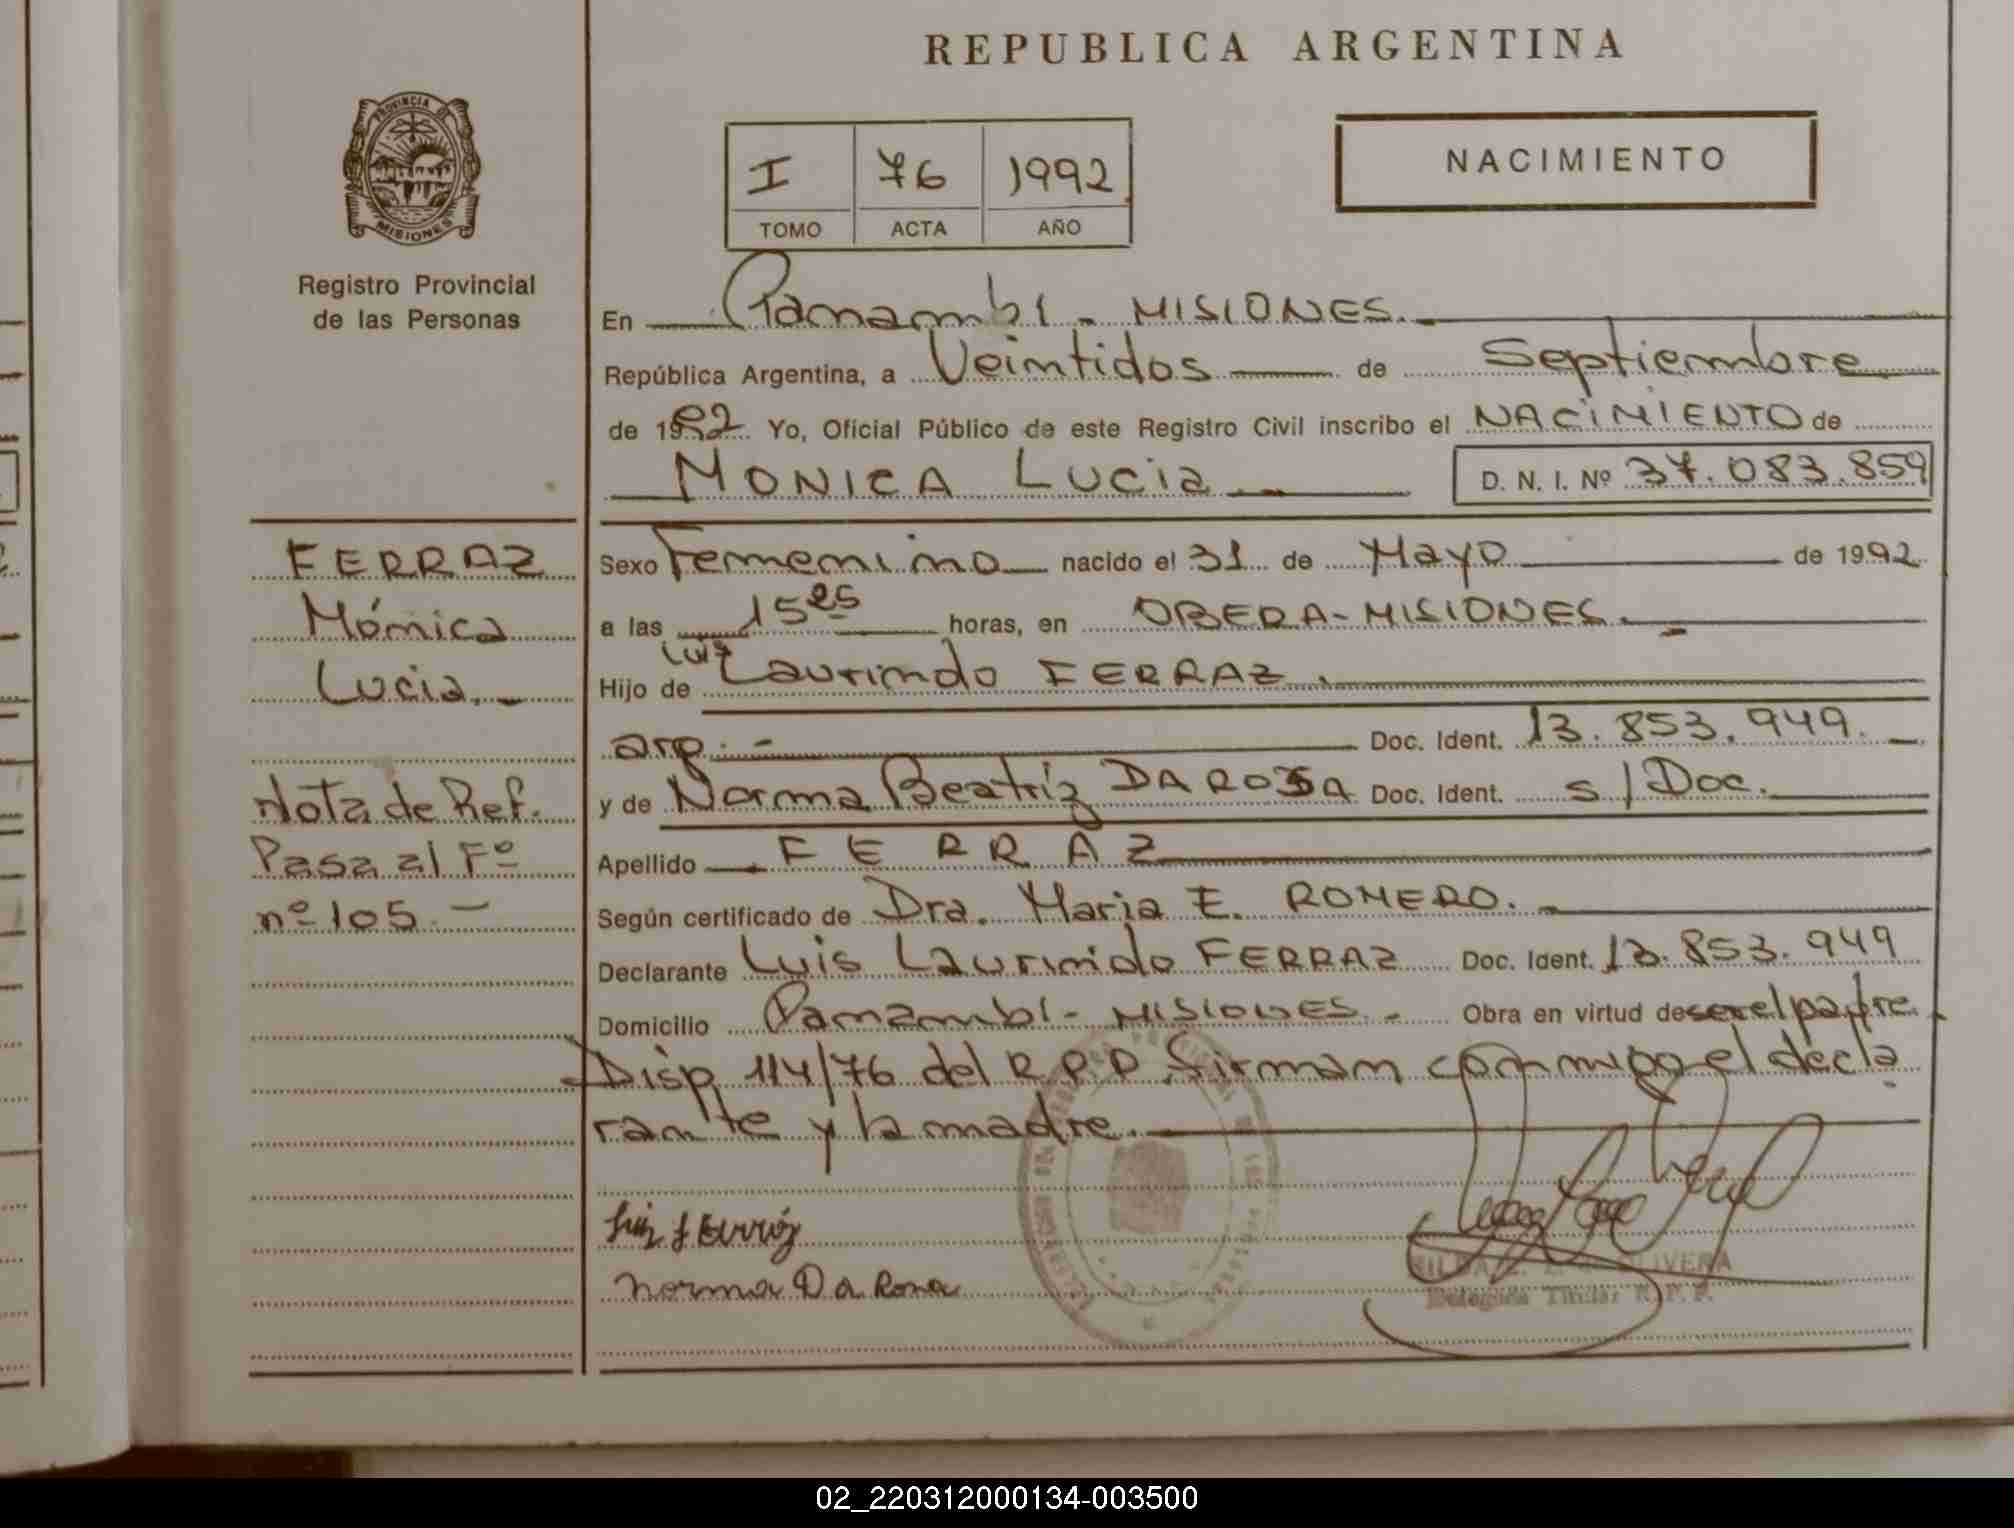 REPUBLICA ARGENTINA
PROVINCIA DE
MISIONES
Registro Provincial
de las Personas
I 76 1992
TOMO ACTA AÑO
NACIMIENTO
En Panambi - MISIONES.
República Argentina, a Veintidos de Septiembre
de 1992 Yo, Oficial Público de este Registro Civil inscribo el NACIMIENTO de
MONICA Lucia D. N. I. Nº 37.083.859
Sexo Femenino nacido el 31 de Mayo de 1992
a las 15 25 horas, en OBERA-MISIONES.
Luis
Hijo de Laurindo FERRAZ.
arg. - Doc. Ident. 13.853.949.
y de Norma Beatriz DA ROSA Doc. Ident. s/Doc.
Apellido FERRAZ
Según certificado de Dra. Maria E. ROMERO.
Declarante Luis Laurindo FERRAZ Doc. Ident. 13.853.949
Domicilio Panambi - MISIONES. - Obra en virtud de ser el padre.
Disp 114/76 del R.P.P. firman conmigo el decla
rante y la madre.
Luiz Ferraz
Norma Da Rosa
OLIVERA
Delegada Titular R.P.P.
FERRAZ
Mónica
Lucia.-
Nota de Ref.
Pasa al Fº
nº 105.-
02_220312000134-003500